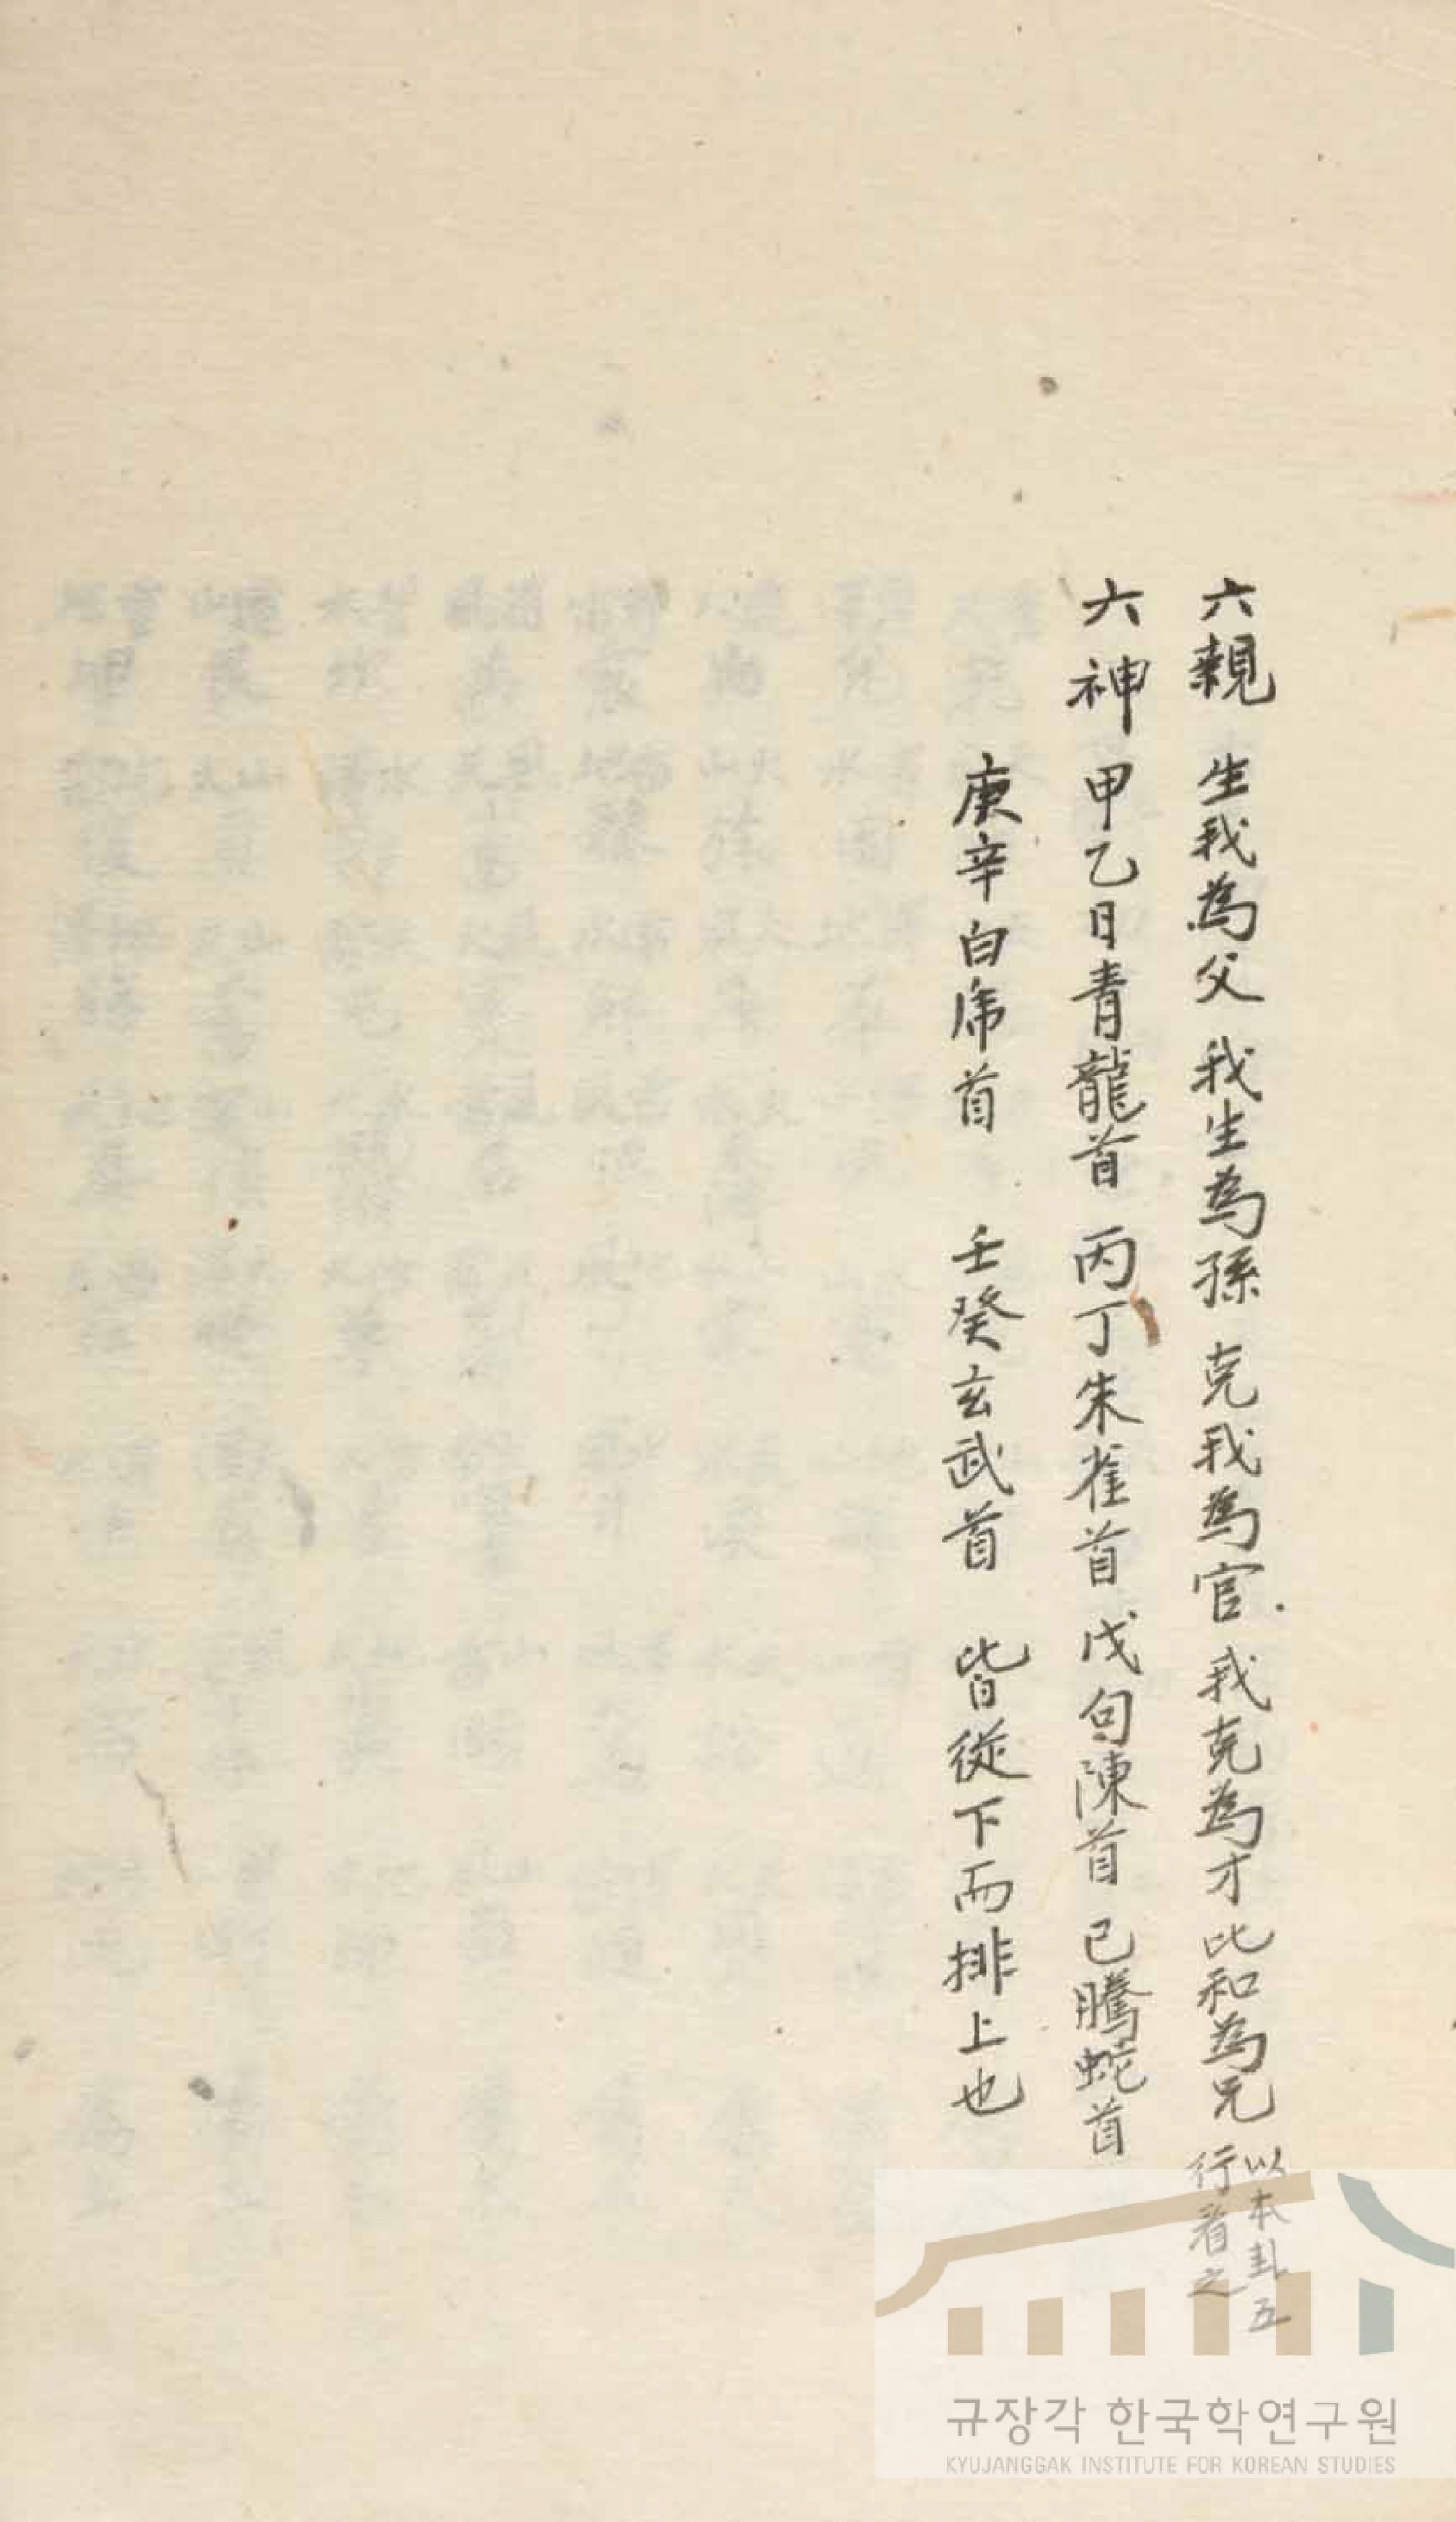 六親 生我為父 我生為孫 克我為官 我克為才 比和為兄 以本卦五
行看之
六神 甲乙日青龍首 丙丁朱雀首 戊句陳首 己騰蛇首
庚辛白虎首 壬癸玄武首 皆從下而排上也
규장각 한국학연구원
KYUJANGGAK INSTITUTE FOR KOREAN STUDIES